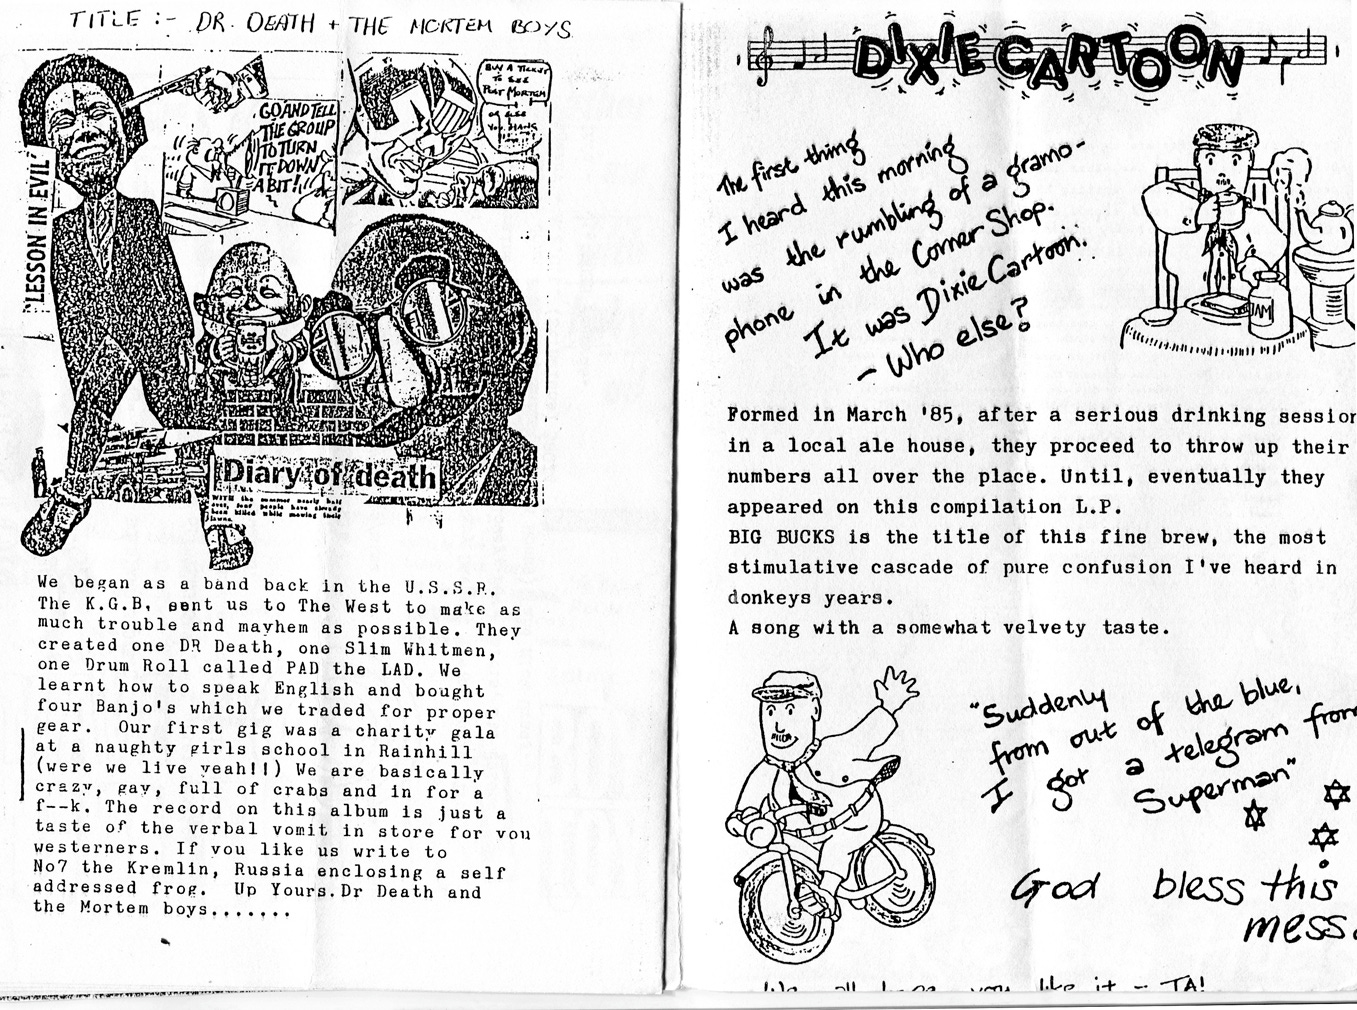 TITLE :- DR. DEATH + THE MORTEM BOYS
"LESSON IN EVIL"
GO AND TELL
THE GROUP
TO TURN
IT DOWN
A BIT!!
BUY A TICKET
TO SEE
POST MORTEM
OR ELSE
YOU HANG
Diary of death
WITH the summer nearly half
over, four people have already
been killed while mowing their
lawns.
We began as a band back in the U.S.S.R.
The K.G.B, sent us to The West to make as
much trouble and mayhem as possible. They
created one DR Death, one Slim Whitmen,
one Drum Roll called PAD the LAD. We
learnt how to speak English and bought
four Banjo's which we traded for proper
gear.  Our first gig was a charity gala
at a naughty girls school in Rainhill
(were we live yeah!!) We are basically
crazy, gay, full of crabs and in for a
f--k. The record on this album is just a
taste of the verbal vomit in store for you
westerners. If you like us write to
No7 the Kremlin, Russia enclosing a self
addressed frog.  Up Yours.Dr Death and
the Mortem boys.......
DIXIE CARTOON
The first thing
I heard this morning
was the rumbling of a gramo-
phone in the Corner Shop.
It was Dixie Cartoon.
- Who else?
JAM
Formed in March '85, after a serious drinking session
in a local ale house, they proceed to throw up their
numbers all over the place. Until, eventually they
appeared on this compilation L.P.
BIG BUCKS is the title of this fine brew, the most
stimulative cascade of pure confusion I've heard in
donkeys years.
A song with a somewhat velvety taste.
"Suddenly
from out of the blue,
I got a telegram from
Superman"
God bless this
mess.
We all hope you like it - TA!